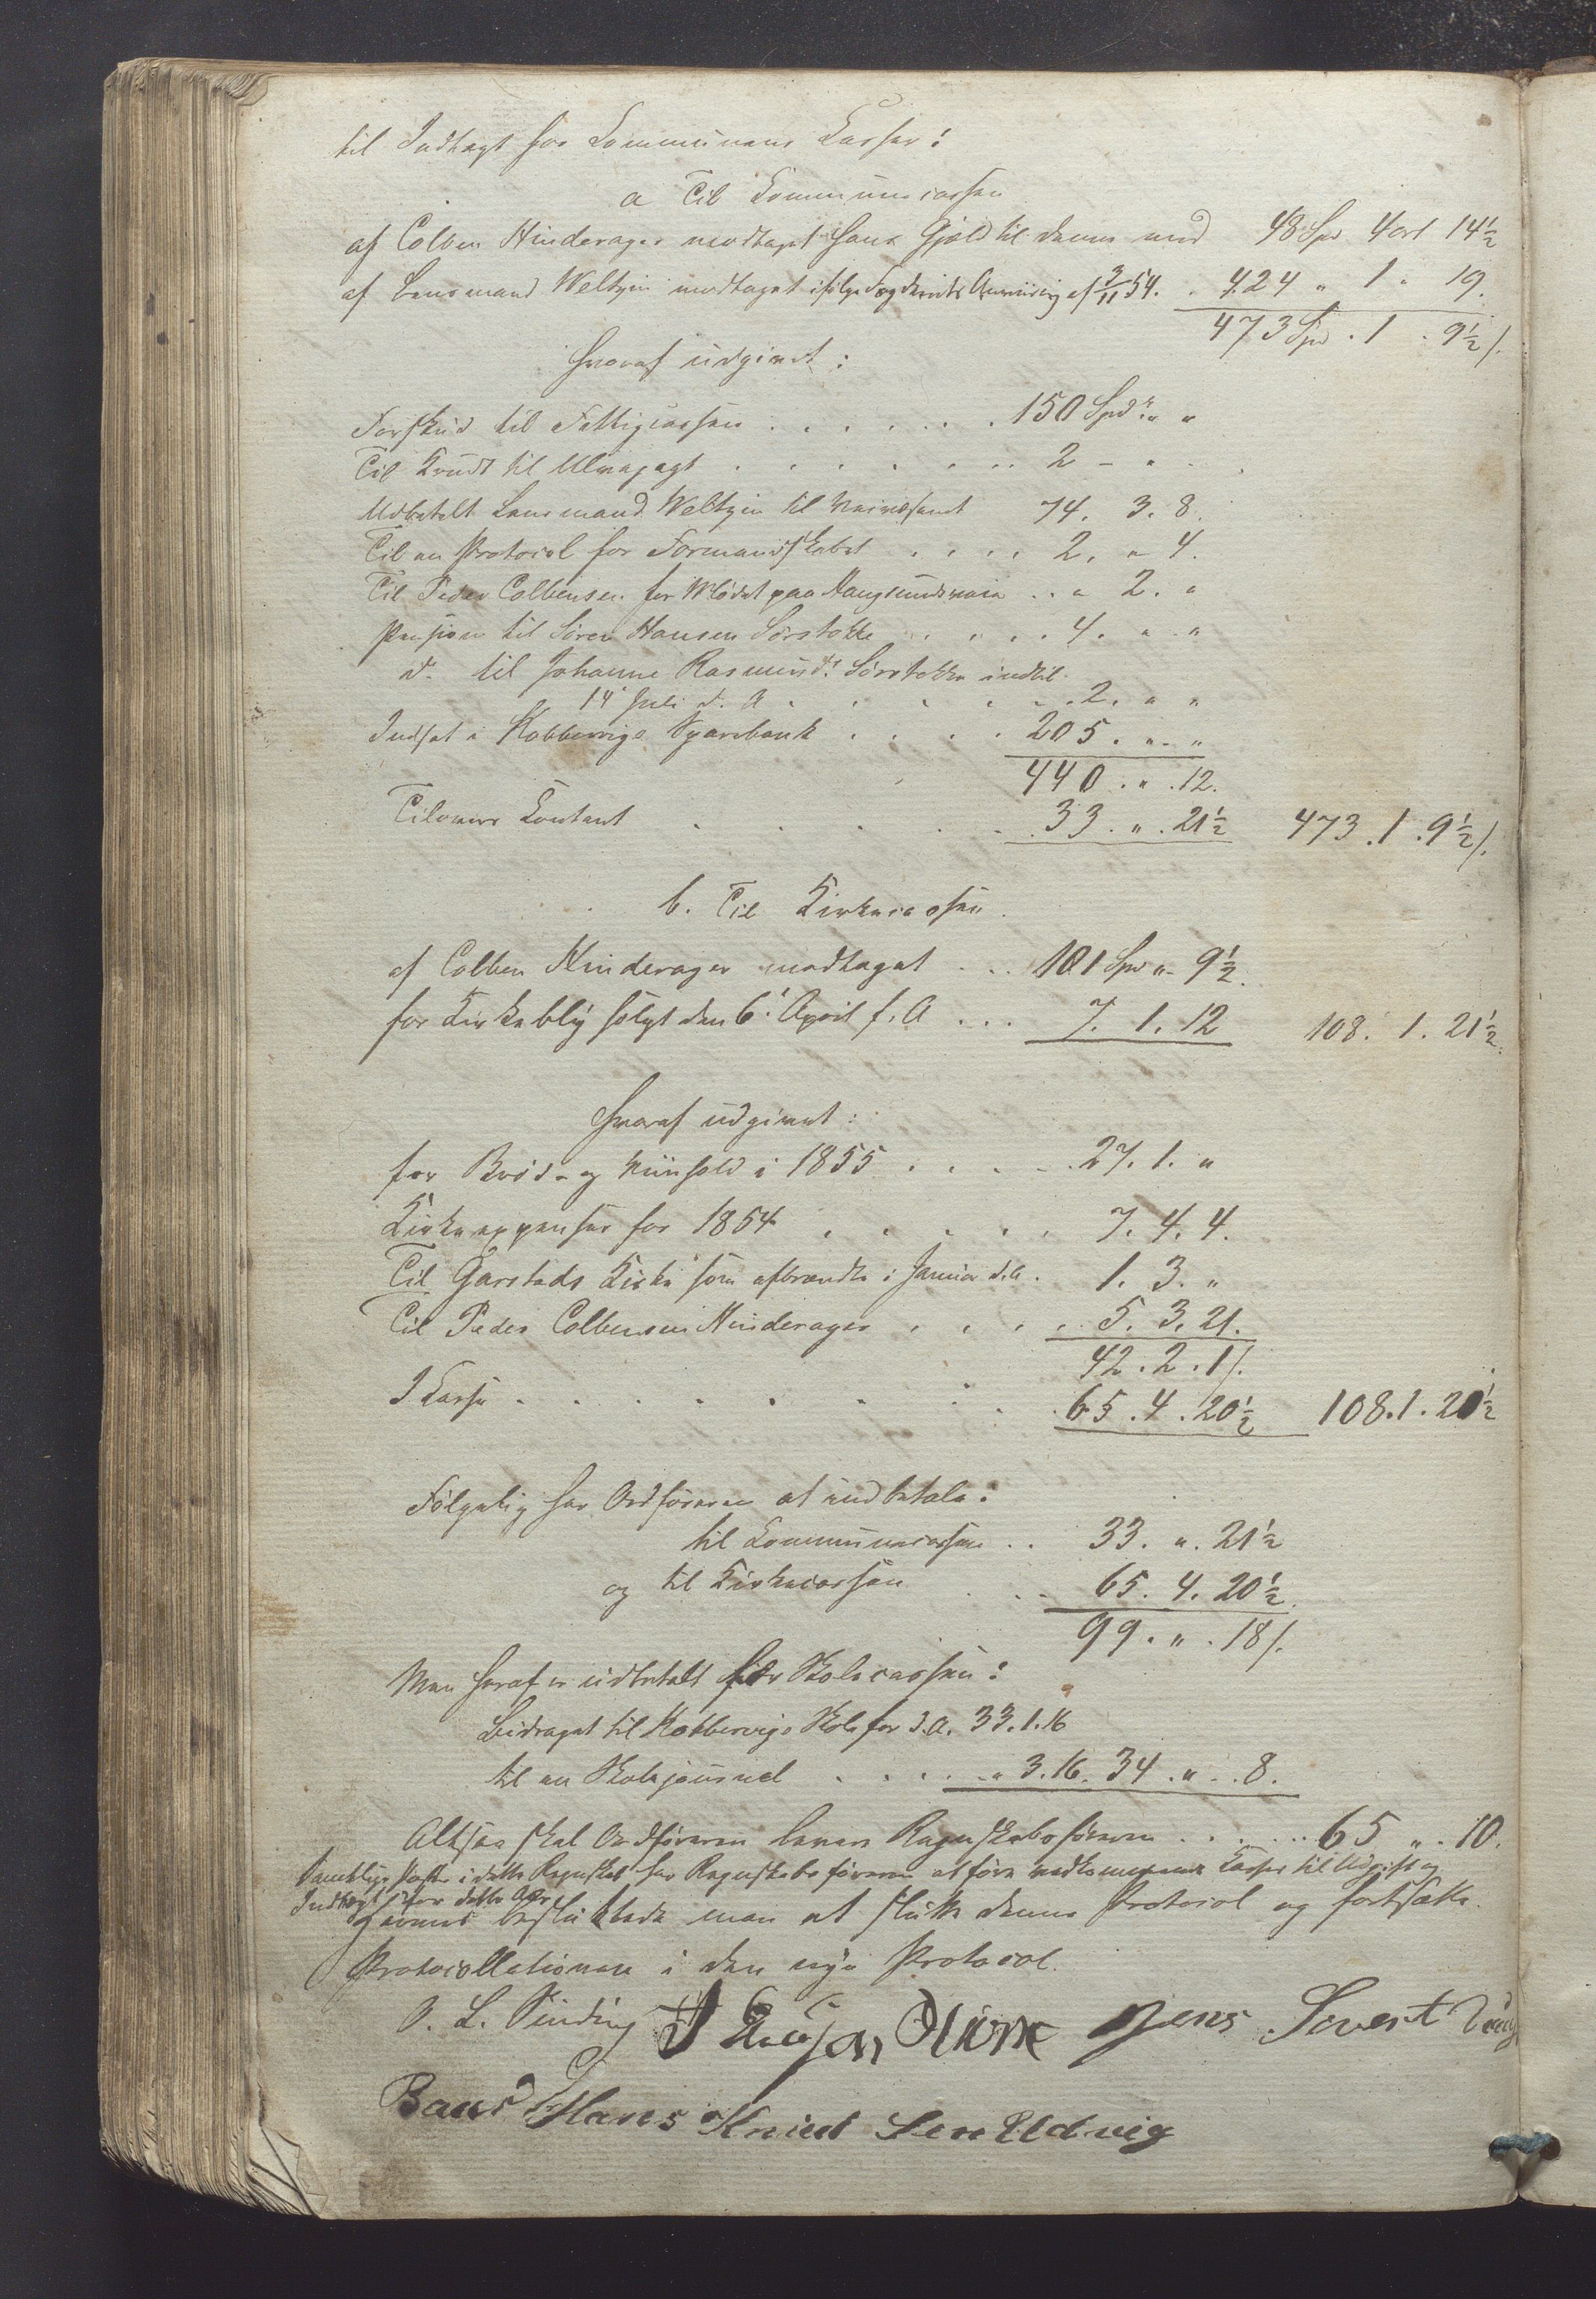 til Indtægt for Kommunens Kasser:
a Til Kommunecassen
af Colben Hinderager modtaget hans Gjæld til denne med 48 Spd 4 ort 14½
af Lensmand Weltzin modtaget ifølge Fogderiets Anviisning af 3/11 54. . 424 " 1 " 19.
473 Spd . 1 . 9½ /.
Hvoraf udgivet:
Forskud til Fattigcassen . . . . . . . 150 Spd " "
Til Krudt til Ulvejagt . . . . . . . 2 - " -
Udbetalt Lensmand Weltzin til 74. 3. 8.
Til en Protocol for Formandskabet . . . . 2. " 4.
Til Peder Colbensen for Arbeidet paa . . " 2. "
Pension til Sören Hansen Sörstokke . . . . 4. " "
d. til Johanne Rasmusd. Sörstokke indtil
14 Juli d. A . . . . . . 2. " "
Indsat i Kobbervigs Sparebank . . . . 205. " - "
440. " . 12.
Tilovers Contant . . . . . 33. " . 21½ 473 . 1 . 9½ /.
b. Til Kirkecassen.
af Colben Hinderager modtaget . . . 101 Spd " - 9½.
for Kirkebly solgt den 6. April f. A . . . 7. 1. 12 108. 1. 21½.
Hvoraf udgivet:
for Bröd- og Viinhold i 1855 . . . . . 27. 1. "
Kirkeexpenser for 1854 . . . . . 7. 4. 4.
Til Garstads Kirke som afbrændte i Januar d. A. 1. 3. "
Til Peder Colbensen Hinderager . . . . . 5. 3. 21.
42 . 2 . 1 /.
I Kasse . . . . . . . . . 65 . 4 . 20½ 108. 1. 20½
Fölgelig har Ordföreren at indbetale:
til Kommunecassen . . 33. " . 21½
og til Kirkecassen . . 65. 4. 20½.
99. " . 18 /.
Men heraf er udbetalt for Skolecassen:
Bidraget til Kobbervigs Skole for d. A. 33. 1. 16
til en Skolejournal . . . . . " 3. 16. 34. " . 8.
Altsaa skal Ordföreren levere Regnskabsföreren . . . . . 65 " . 10.
Samtlige Poster i dette Regnskab har Regnskabsföreren at före vedkommende Kasser til Udgift og
Indtægt for dette Aar
besluttede man at slutte denne Protocol og fortsætte
Protocollationen i den nye Protocol.
O. L. Sinding Jens Sivert
Hans Knud Sen Udvig